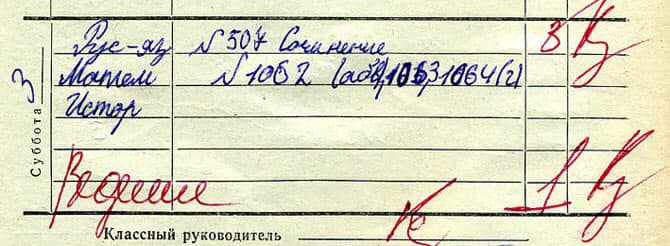 Суббота 3
Рус-яз N 507 Сочинение 3
Матем N 1062 (абв), 1063, 1064 (г)
Истор
Ведение 1
Классный руководитель